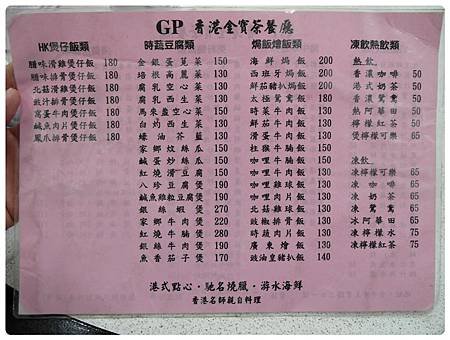 GP 香港金寶茶餐廳
HK煲仔飯類
臘味滑雞煲仔飯 180
臘味排骨煲仔飯 180
北菇滑雞煲仔飯 180
豉汁排骨煲仔飯 180
窩蛋牛肉煲仔飯 180
鹹魚肉片煲仔飯 180
鳳爪排骨煲仔飯 180
時蔬豆腐類
金銀蛋莧菜 150
培根高麗菜 150
腐乳空心菜 150
腐乳西生菜 150
馬來盞空心菜 150
白灼西生菜 150
蠔油芥藍 150
家鄉炆絲瓜 150
鹹蛋炒絲瓜 150
紅燒滑豆腐 150
八珍豆腐煲 190
鹹魚雞粒豆腐煲 190
銀絲蝦煲 270
家鄉牛肉煲 190
紅燒牛腩煲 220
銀絲牛肉煲 190
魚香茄子煲 170
焗飯燴飯類
海鮮焗飯 200
西班牙焗飯 200
鮮茄豬扒焗飯 200
太極鴛鴦飯 180
時菜牛肉飯 130
鮮茄牛肉飯 130
滑蛋牛肉飯 130
柱猴牛腩飯 130
咖哩牛腩飯 130
咖哩牛肉飯 130
咖哩雞球飯 130
咖哩肉片飯 130
北菇雞球飯 130
豉椒排骨飯 130
時蔬肉片飯 130
廣東燴飯 130
豉油皇豬扒飯 140
凍飲熱飲類
熱飲
香濃咖啡 50
港式奶茶 50
香濃鴛鴦 50
熱阿華田 50
檸檬紅茶 50
煲檸檬可樂 65
凍飲
凍檸檬可樂 65
凍咖啡 65
凍奶茶 65
凍鴛鴦 65
冰阿華田 65
凍檸檬水 75
凍檸檬紅茶 75
港式點心·馳名燒臘·游水海鮮
香港名師親自料理